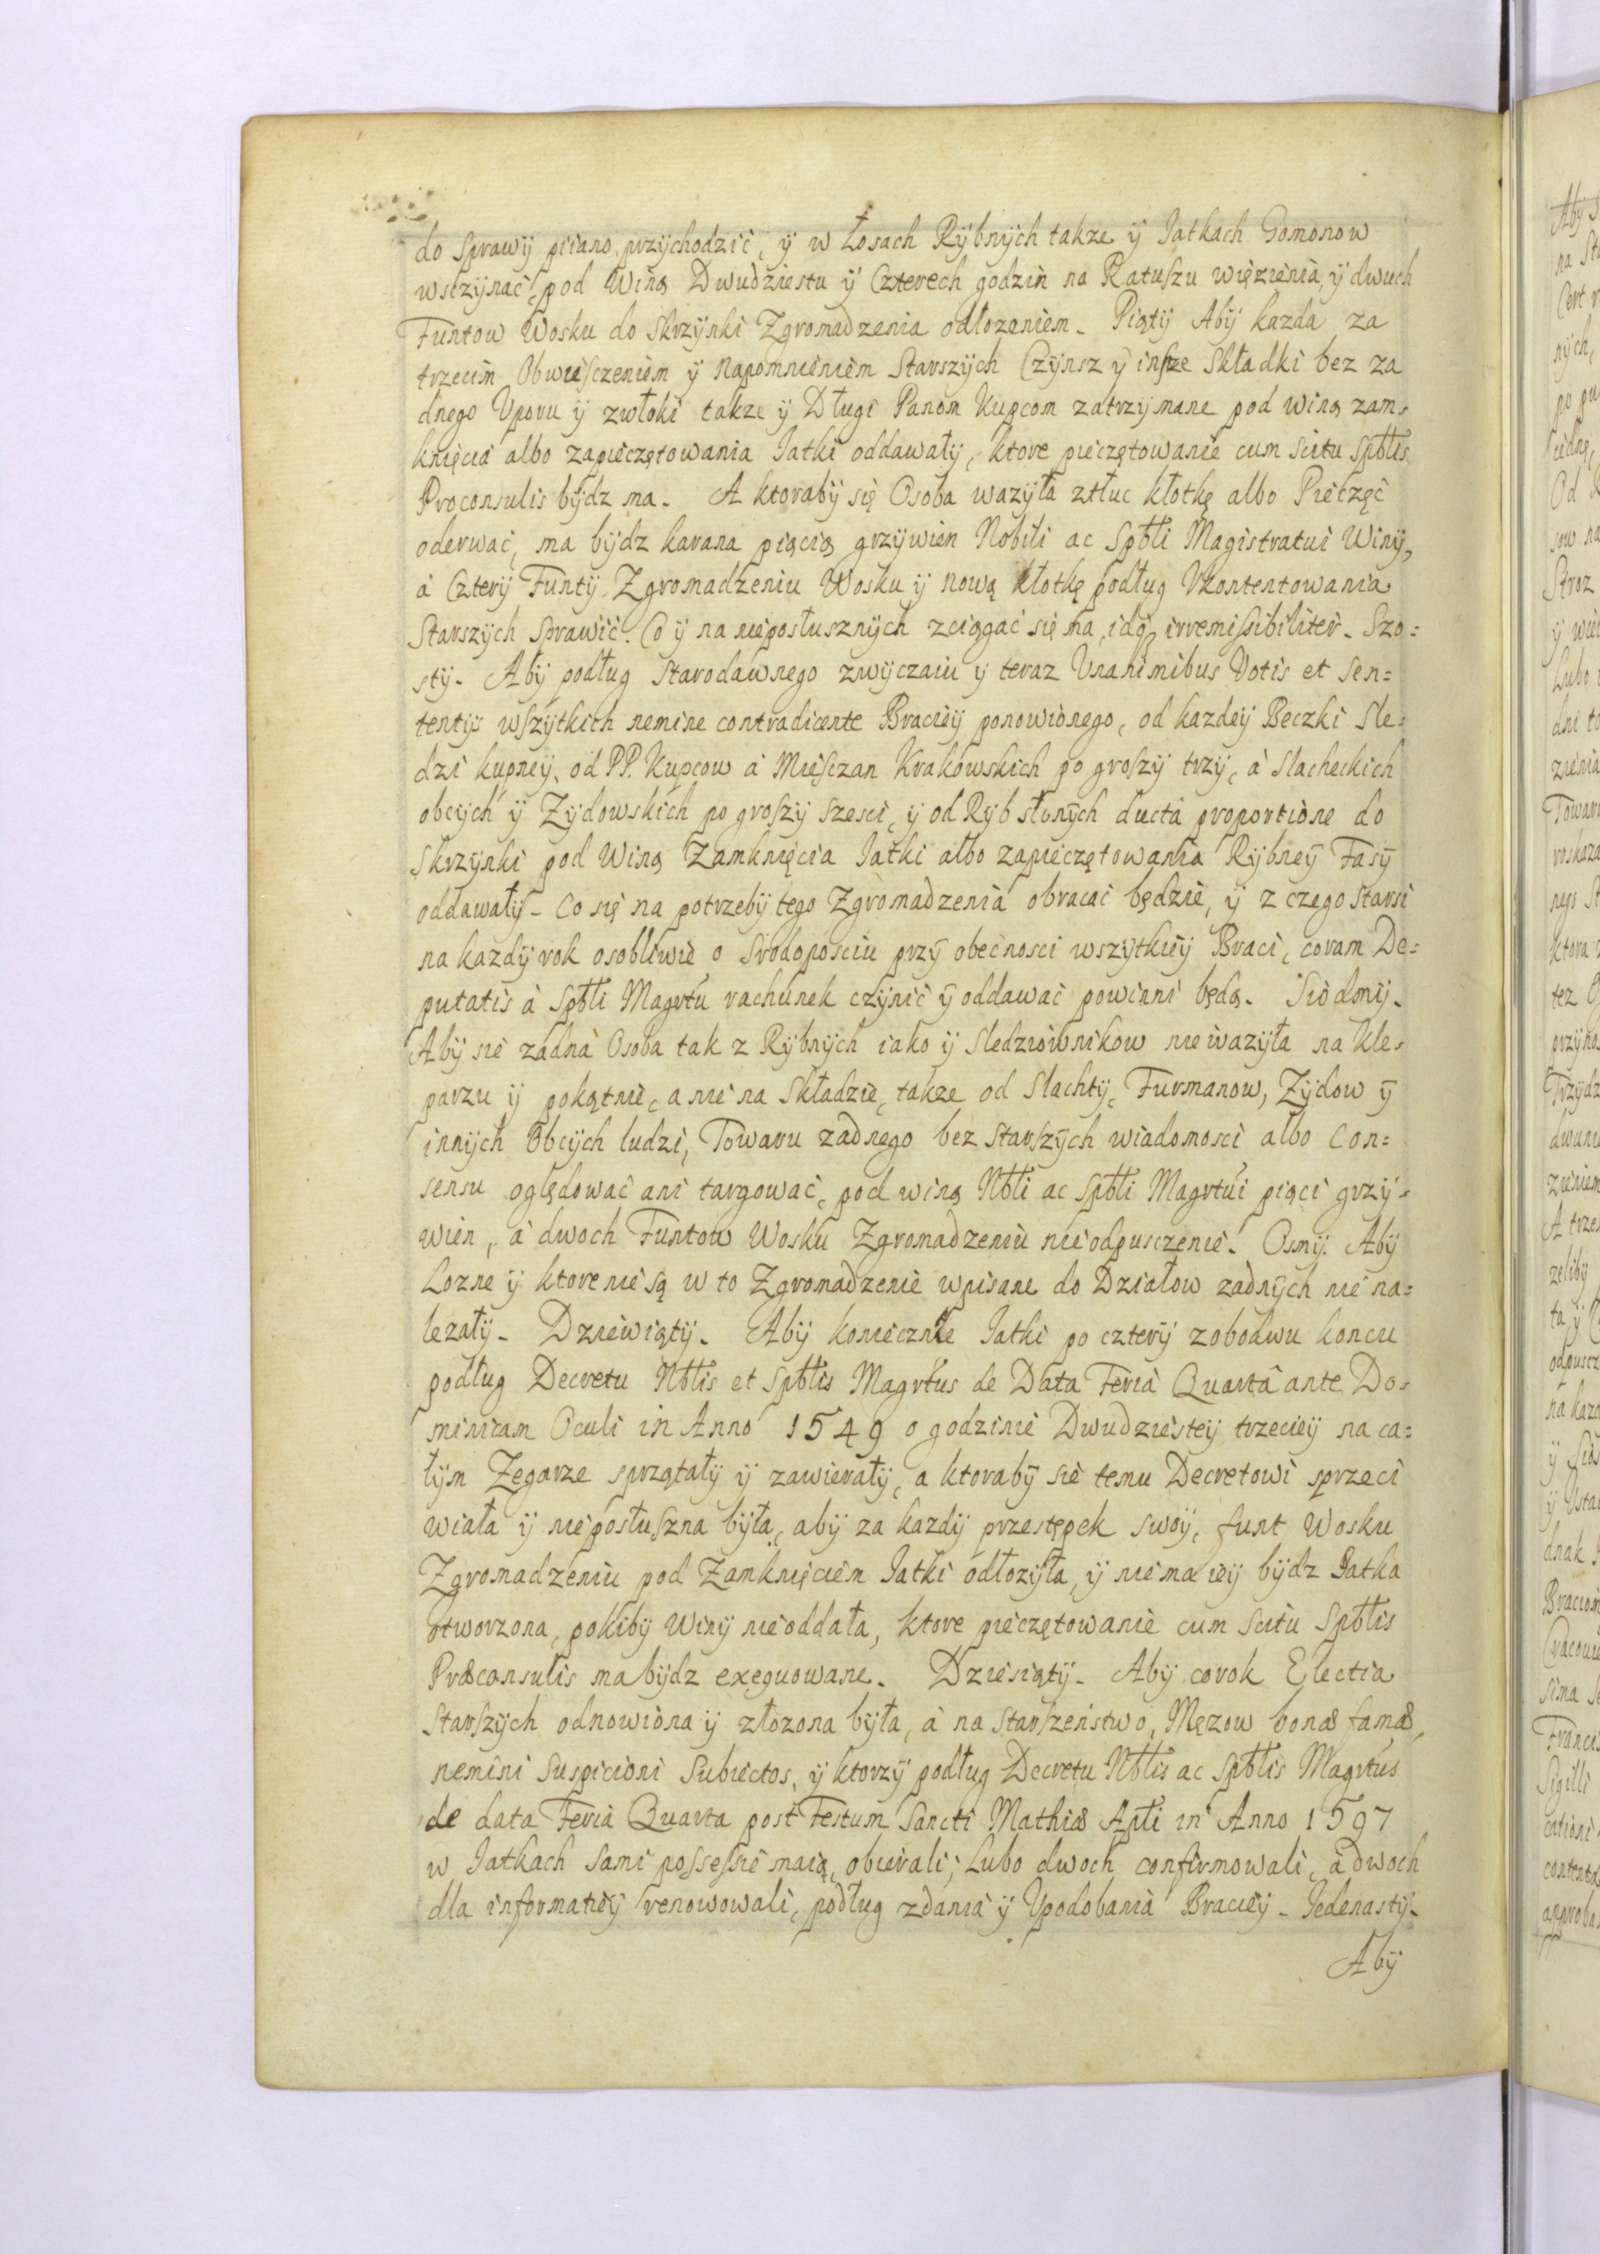 do Sprawy piiano przychodzić, ÿ w Łosach Rÿbnÿch takze ÿ Jatkach Gomonow
wsczÿnać, pod Winą Dwudziestu ÿ Czterech godzin na Ratuszu więzienia, ÿ dwuch
Funtow Wosku do Skrzÿnki Zgromadzenia odłozeniem. Piątÿ Abÿ kazda za
trzecim Obwiesczeniem ÿ Napomnieniem Starszÿch Czÿnsz ÿ insze Składki bez za
dnego Vporu ÿ zwłoki takze ÿ Długi Panom Kupcom zatrzÿmane pod winą zam-
knięcia albo zapieczętowania Jatki oddawałÿ, ktore pieczętowanie cum scitu Spbłis
Proconsulis bÿdz ma. A ktorabÿ się Osoba wazÿła ztłuc kłotkę albo Pieczęć
oderwać, ma bÿdz karana piącią grzÿwien Nobili ac Spbłi Magistratui Winÿ,
à Czterÿ Funtÿ Zgromadzeniu Wosku ÿ nową kłotkę podług Vkontentowania
Starszÿch sprawić. Co ÿ na nieposłusznÿch zciągać się ma, idq, irremissibiliter. Szo=
stÿ. Abÿ podług Starodawnego zwÿczaiu ÿ teraz Vnanimibus Votis et Sen=
tentijs wszÿtkich nemine contradicente Bracieÿ ponowionego, od kazdeÿ Beczki Sle-
dzi kupneÿ, od PP. Kupcow à Miesczan Krakowskich po groszÿ trzÿ, à Slacheckich
obcÿch ÿ Zÿdowskich po groszÿ szesci, ÿ od Rÿb słonÿch ducta proportione do
Skrzÿnki pod Winą Zamknięcia Jatki albo zapieczętowania Rÿbneÿ Fasÿ
oddawałÿ. Co się na potrzebÿ tego Zgromadzenia obracać będzie, ÿ z czego Starsi
na kazdÿ rok osobliwie o Srodoposciu przÿ obecnosci wszÿtkieÿ Braci, coram De=
putatis à Spbłi Magrtu rachunek czÿnić ÿ oddawać powinni będą. Siodmÿ.
Abÿ sie zadna Osoba tak z Rÿbnÿch iako ÿ Sledziownikow nie wazÿła na Kle-
parzu ÿ pokątnie, a nie na Składzie, takze od Slachtÿ, Furmanow, Zÿdow ÿ
innÿch Obcÿch ludzi, Towaru zadnego bez Starszÿch wiadomosci albo Con=
sensu oględować ani targować, pod winą Nbłi ac Spbłi Magrtui pięci grzÿ-
wien, à dwoch Funtow Wosku Zgromadzeniu nieodpusczenie. Osmÿ. Abÿ
Lozne ÿ ktore nie są w to Zgromadzenie wpisane do Działow zadnÿch nie na=
lezałÿ. Dziewiątÿ. Abÿ koniecznie Jatki po czterÿ zobodwu koncu
podług Decretu Nbłis et Spbłis Magrtus de Data Feria Quarta ante Do-
minicam Oculi in Anno 1549 o godzinie Dwudziesteÿ trzecieÿ na ca=
łÿm Zegarze sprzątałÿ ÿ zawierałÿ, a ktorabÿ sie temu Decretowi sprzeci
wiała ÿ nieposłuszna bÿła, abÿ za kazdÿ przestępek swoÿ, funt Wosku
Zgromadzeniu pod Zamknięciem Jatki odłozÿła, ÿ nie ma ieÿ bÿdz Jatka
otworzona, pokibÿ Winÿ nie oddała, ktore pieczętowanie cum Scitu Spbłis
Præconsulis ma bÿdz exequowane. Dziesiątÿ. Abÿ corok Electia
Starszÿch odnowiona ÿ złozona bÿła, à na Starszeństwo, Męzow bonæ famæ,
nemini Suspicioni Subiectos, ÿ ktorzÿ podług Decretu Nbłis ac Spbłis Magrtus
de data Feria Quarta post Festum Sancti Mathiæ Apłi in Anno 1597
w Jatkach Sami possessie maią, obierali; Lubo dwoch confirmowali, à dwoch
dla informatieÿ renowowali, podług zdania ÿ Vpodobania Bracieÿ. Jedenastÿ.
Abÿ